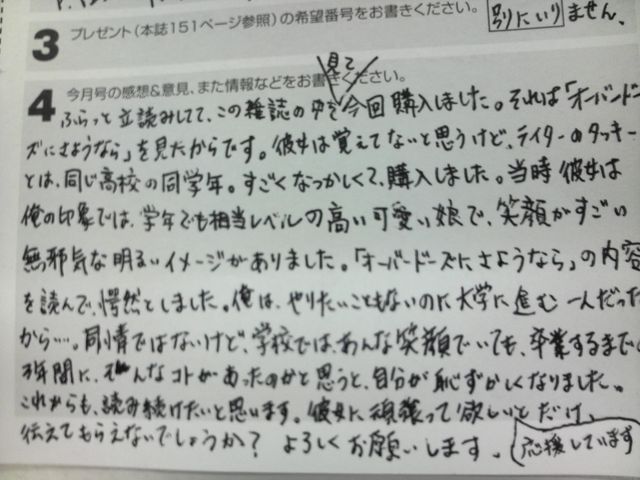 3 プレゼント(本誌151ページ参照)の希望番号をお書きください。 別にいりません。
4 今月号の感想&意見、また情報などをお書きください。
ふらっと立読みしてて、この雑誌の中を見て今回購入しました。それは「オーバードー
ズにさようなら」を見たからです。彼女は覚えてないと思うけど、ライターのタッキー
とは、同じ高校の同学年。すごくなつかしくて、購入しました。当時彼女は
俺の印象では、学年でも相当レベルの高い可愛い娘で、笑顔がすごい
無邪気な明るいイメージがありました。「オーバードーズにさようなら」の内容
を読んで、愕然としました。俺は、やりたいこともないのに大学に進む一人だった
から…。同情ではないけど、学校では、あんな笑顔でいても、卒業するまでの
3年間に、そんなコトがあったのかと思うと、自分が恥ずかしくなりました。
これからも、読み続けたいと思います。彼女に頑張って欲しいとだけ、
伝えてもらえないでしょうか? よろしくお願いします。 応援しています